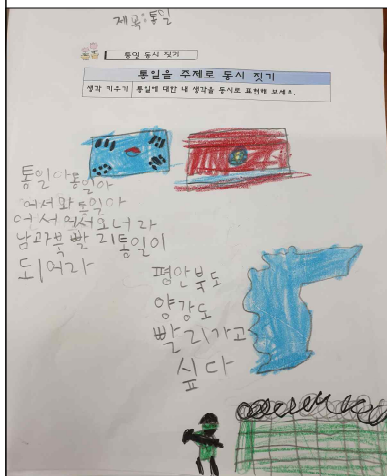 제목:통일
통일 동시 짓기
통일을 주제로 동시 짓기
생각 키우기 통일에 대한 내 생각을 동시로 표현해 보세요.
통일아통일아
어서와통일아
어서어서오너라
남과북빨리통일이
되어라
평안북도
양강도
빨리가고
싶다